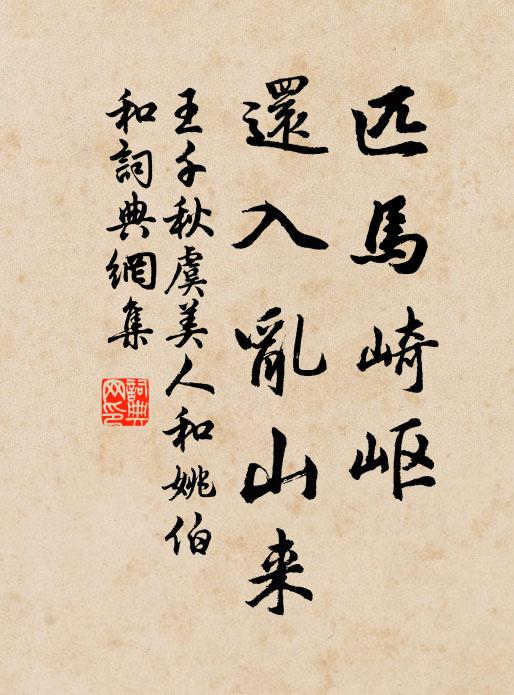 匹馬崎岖
還入亂山来
王千秋虞美人和姚伯
和詞典網集
詞典網印